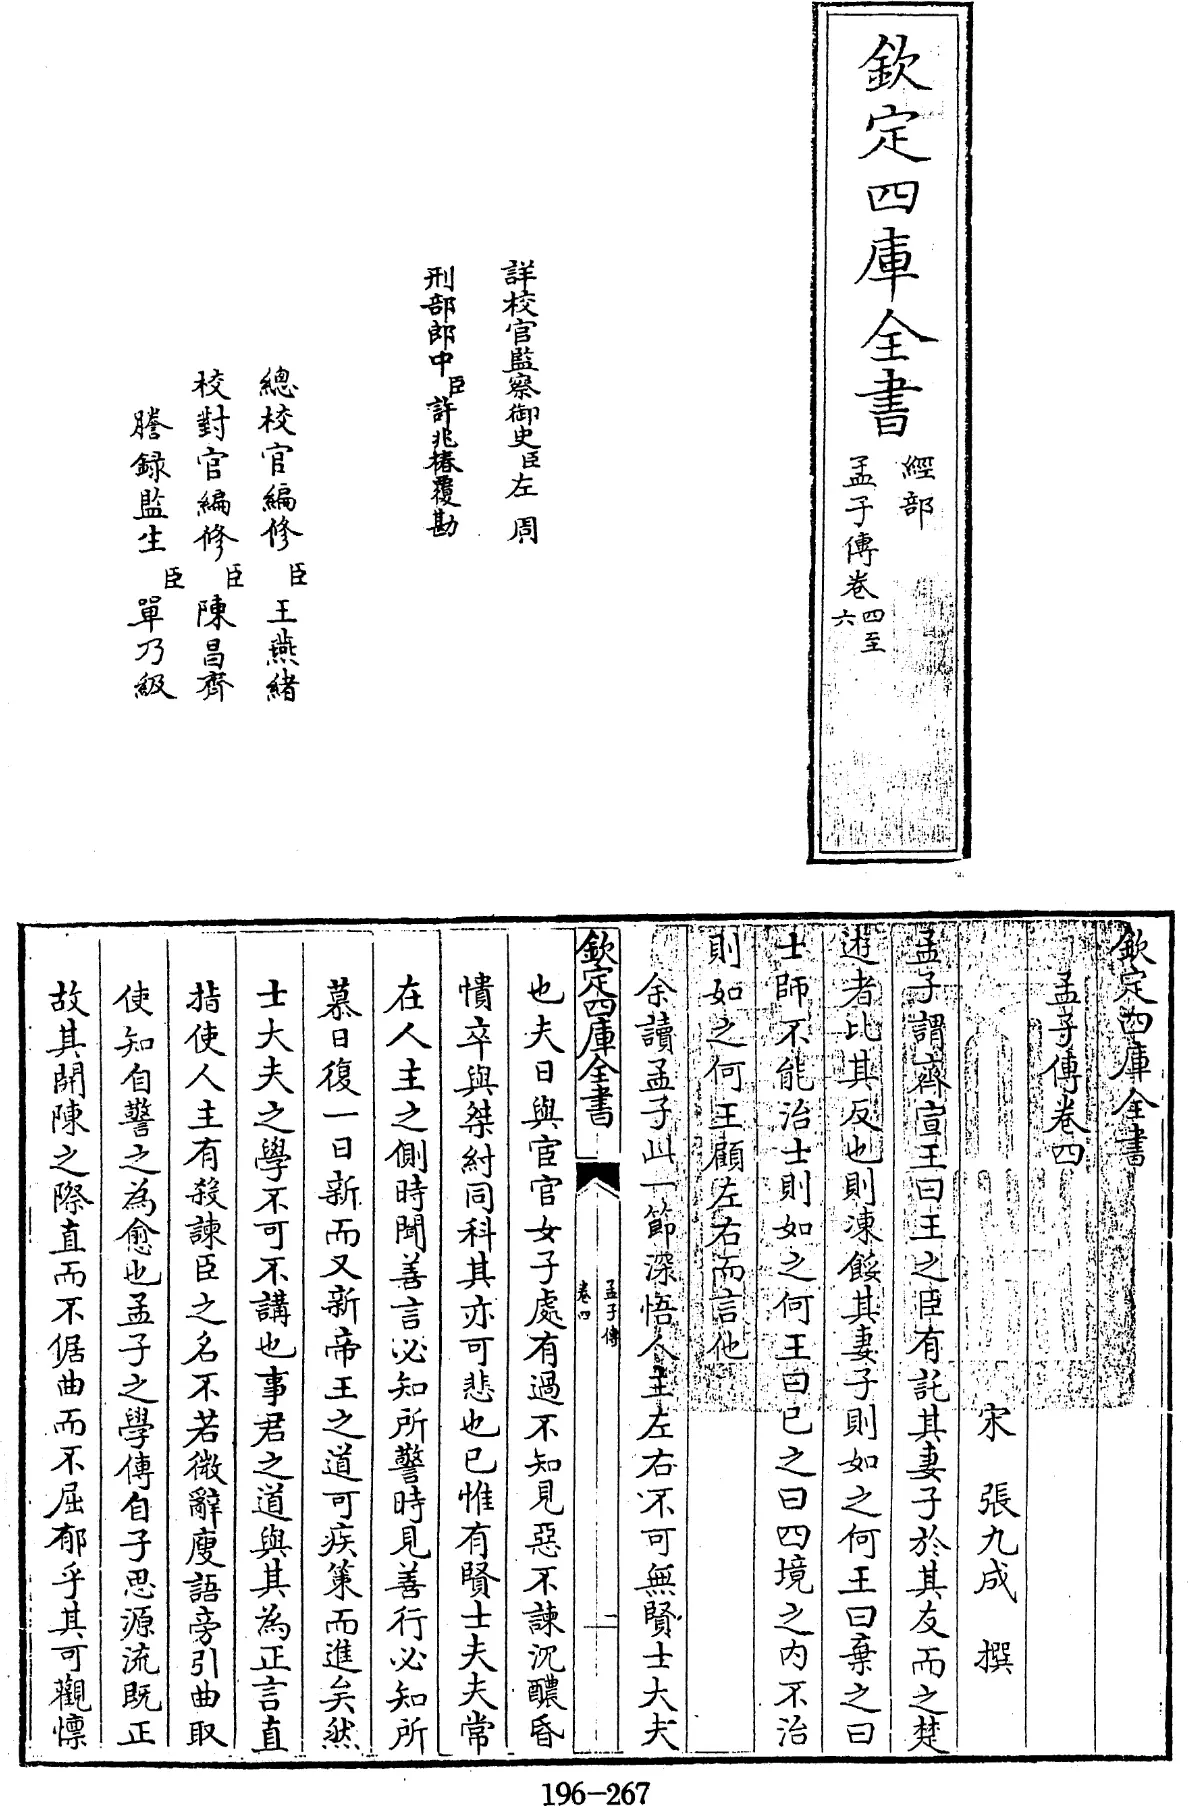 欽定四庫全書
經部
孟子傳卷四至六
詳校官監察御史臣左周
刑部郎中臣許兆椿覆勘
總校官編修臣王燕緒
校對官編修臣陳昌齊
謄録監生臣單乃級
欽定四庫全書
孟子傳卷四
宋 張九成 撰
孟子謂齊宣王曰王之臣有託其妻子於其友而之楚
遊者比其反也則凍餒其妻子則如之何王曰棄之曰
士師不能治士則如之何王曰已之曰四境之内不治
則如之何王顧左右而言他
余讀孟子此一節深悟人主左右不可無賢士大夫
欽定四庫全書
孟子傳
卷四
二
也夫日與宦官女子處有過不知見惡不諫沉醲昏
憒卒與桀紂同科其亦可悲也已惟有賢士夫夫常
在人主之側時聞善言必知所警時見善行必知所
慕日復一日新而又新帝王之道可疾策而進矣然
士大夫之學不可不講也事君之道與其為正言直
指使人主有殺諫臣之名不若微辭廋語旁引曲取
使知自警之為愈也孟子之學傳自子思源流既正
故其開陳之際直而不倨曲而不屈郁乎其可觀懔
196-267